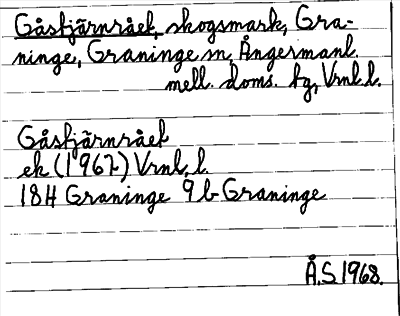 Gåstjärnråel, skogsmark, Gra-
ninge, Graninge sn, Ångermanl.
mell. doms. tg, Vrnl. l.
Gåstjärnråel
ek (1967) Vrnl. l.
18H Graninge 9 b Graninge
Å.S. 1968.